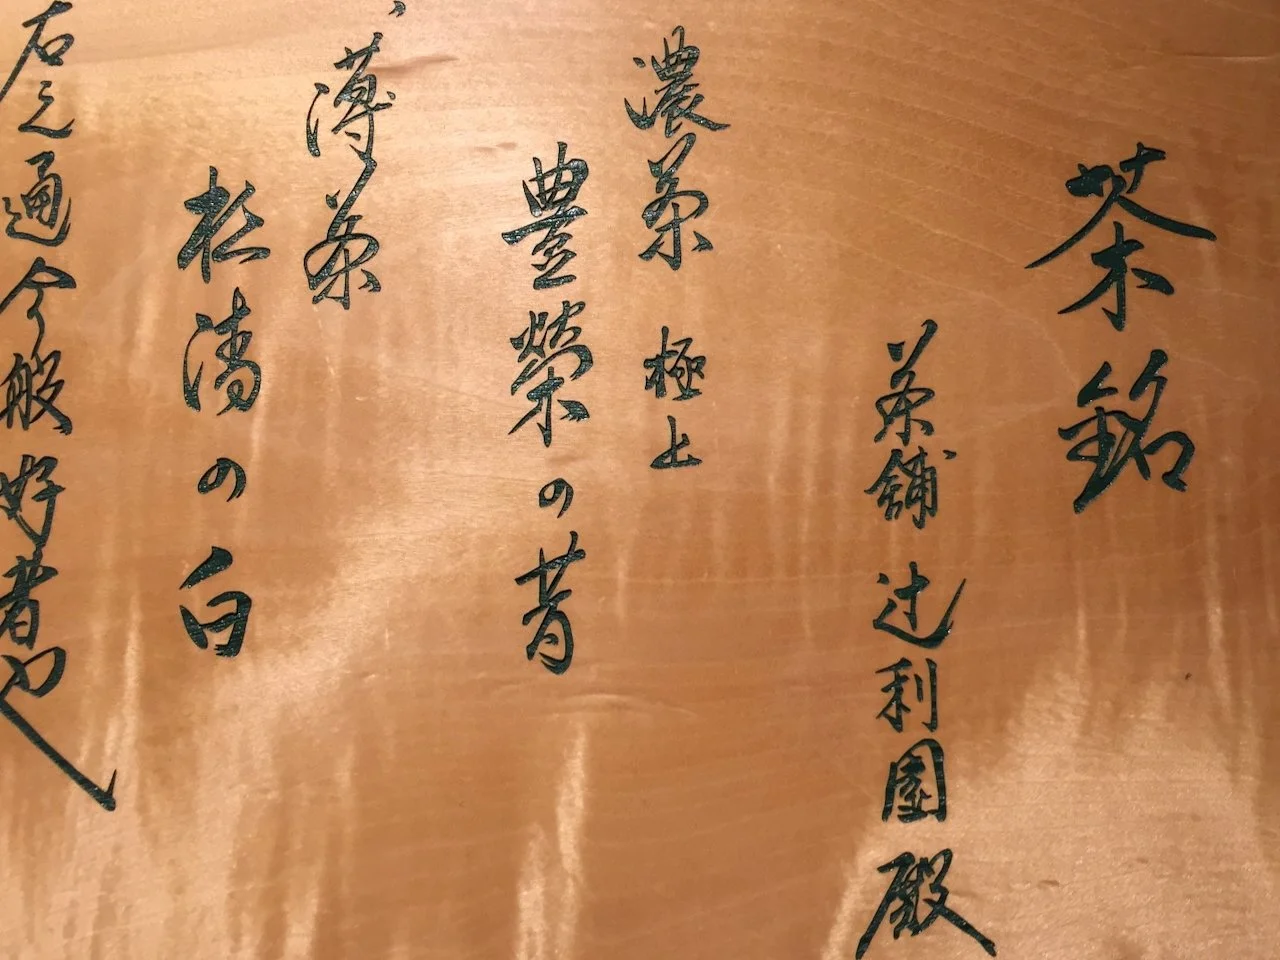 茶銘
茶舗 辻利園殿
濃茶 極上
豊榮の昔
薄茶
松清の白
右之通今般好者也